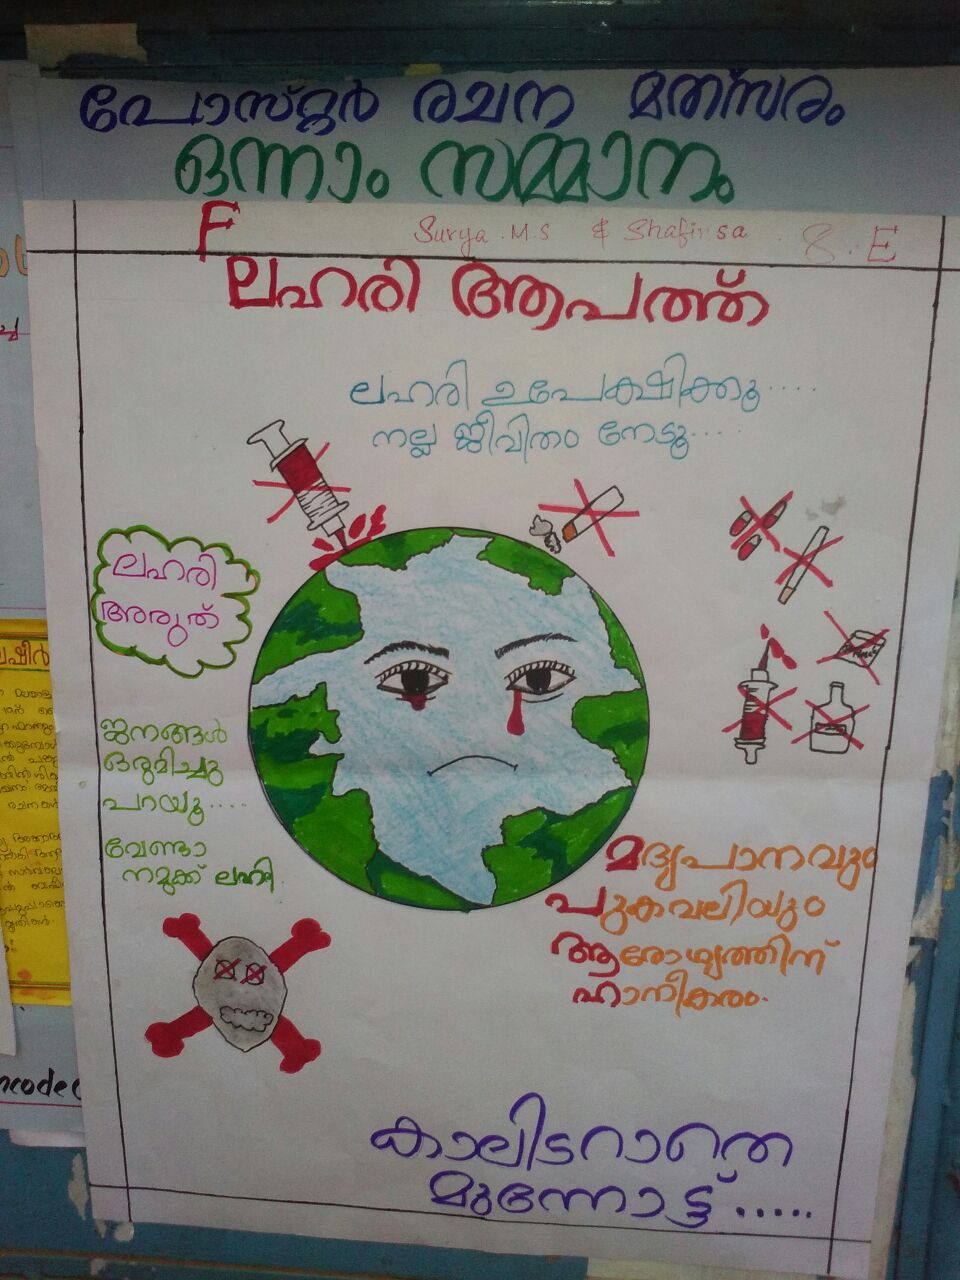 പോസ്റ്റർ രചന മത്സരം
ഒന്നാം സമ്മാനം
F
Surya.M.S & Shafinsa 8.E
ലഹരി ആപത്ത്
ലഹരി ഉപേക്ഷിക്കൂ....
നല്ല ജീവിതം നേടൂ....
ലഹരി
അരുത്
ജനങ്ങൾ
ഒരുമിച്ചു
പറയൂ.....
വേണ്ടാ
നമുക്ക് ലഹരി
മദ്യപാനവും
പുകവലിയും
ആരോഗ്യത്തിന്
ഹാനീകരം.
കാലിടറാതെ
മുന്നോട്ട്.....